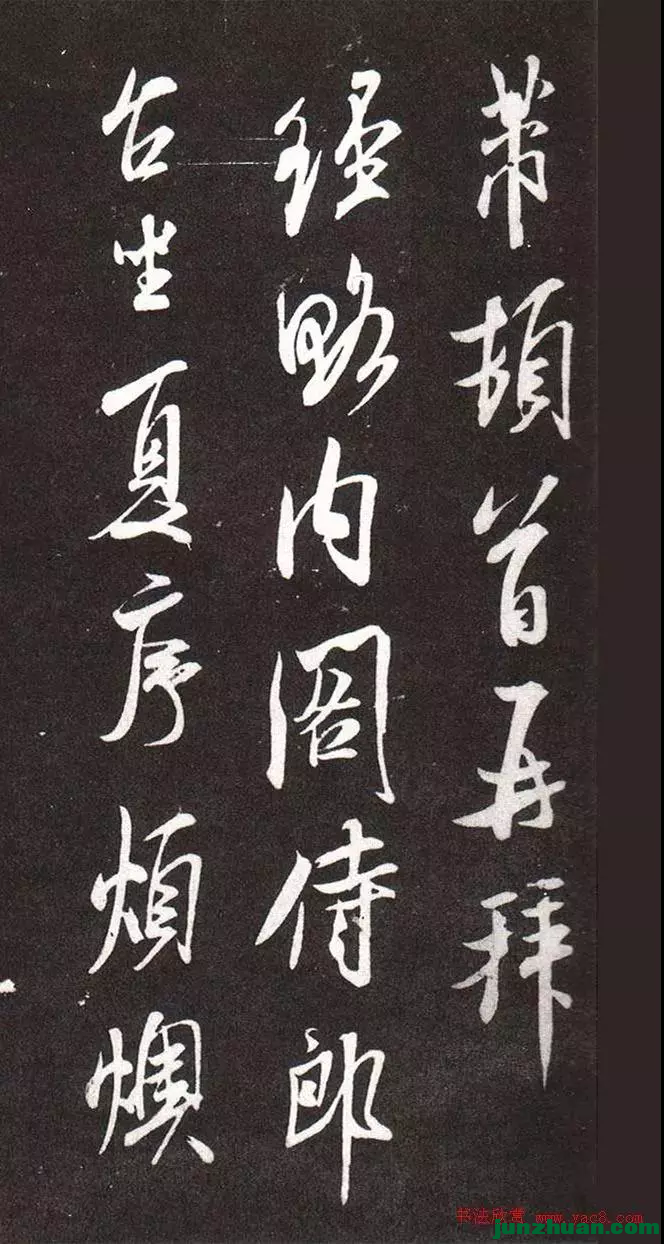 芾頓首再拜
經略内閣侍郎
台坐夏序煩燠
书法欣赏 www.yac8.com
junzhuan.com